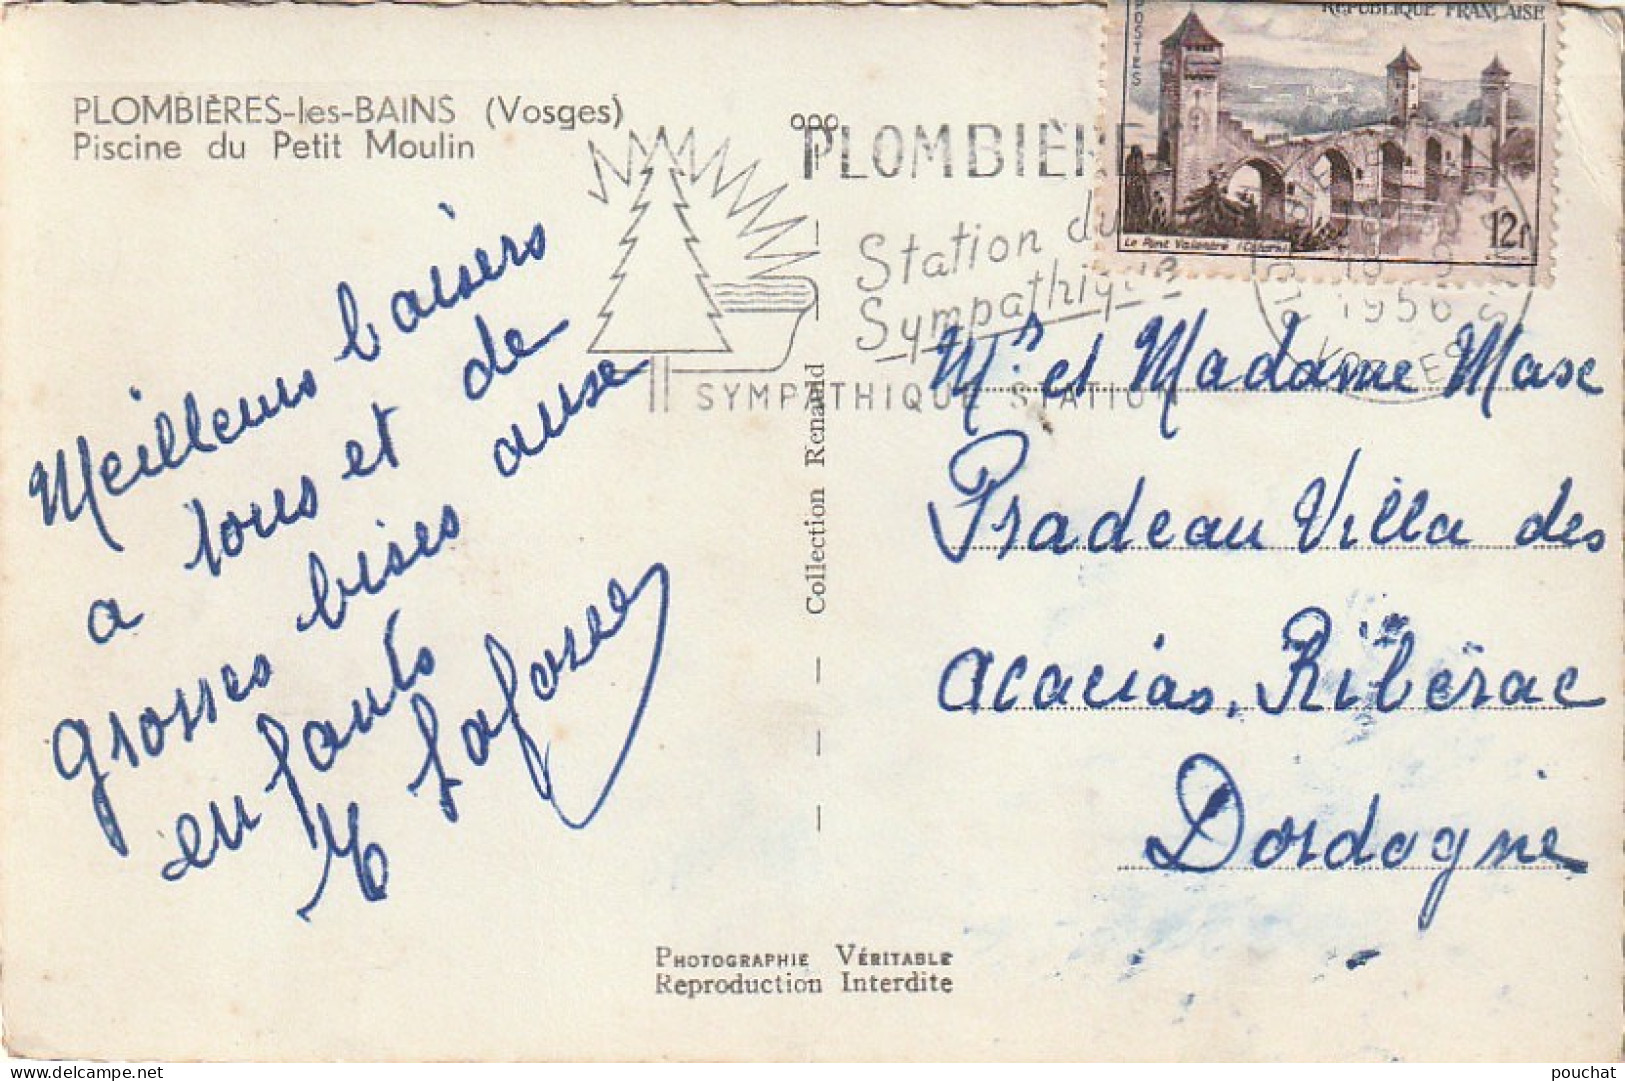 PLOMBIÈRES-les-BAINS (Vosges)
Piscine du Petit Moulin
Meilleurs baisers
a tous et de
grosses bises aux
enfants
PLOMBIÈRE
Station du
Sympathique
SYMPATHIQUE STATION
POSTES
REPUBLIQUE FRANÇAISE
Le Pont Valentré (Cahors)
12f
1956
VOSGES
Collection Renauld
Mr et Madame Max
Pradeau Villa des
acacias, Ribérac
Dordogne
PHOTOGRAPHIE VÉRITABLE
Reproduction Interdite
delcampe.net
pouchat